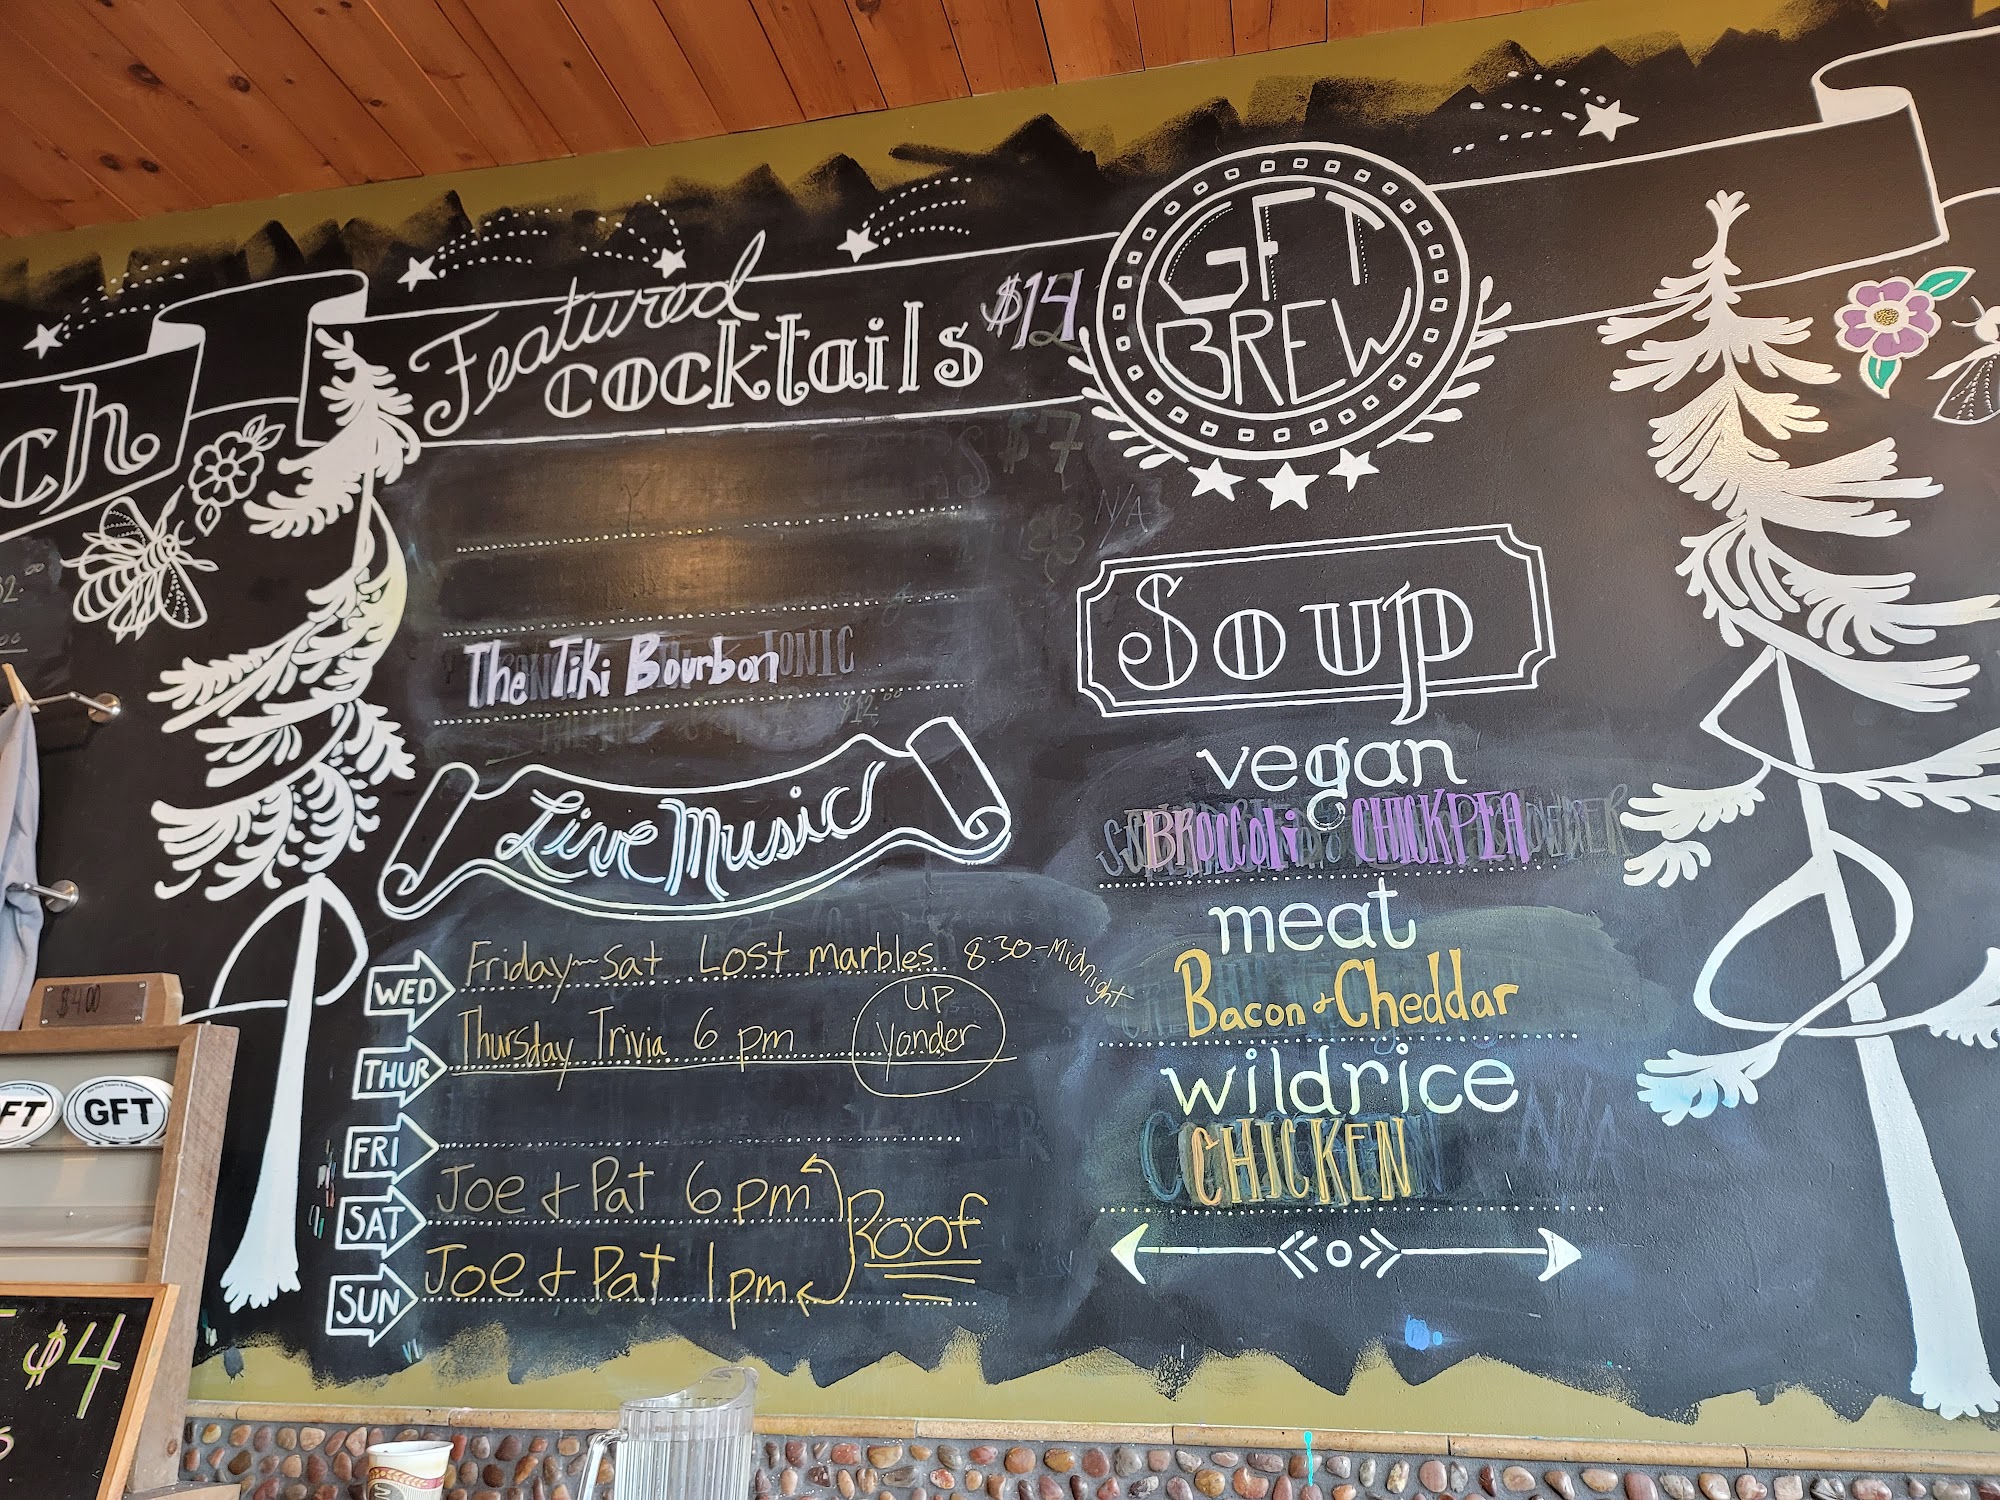 ch.
Featured
cocktails $14
GFT
BREW
$7
N/A
The Tiki Bourbon
Live Music
WED Friday~Sat Lost marbles 8:30-Midnight
THUR Thursday Trivia 6 pm
UP
Yonder
FRI
SAT Joe & Pat 6pm
SUN Joe & Pat 1pm
Roof
Soup
vegan
BROCCOLi CHICKPEA
meat
Bacon & Cheddar
wildrice
CHICKEN
$4.00
GFT
$4